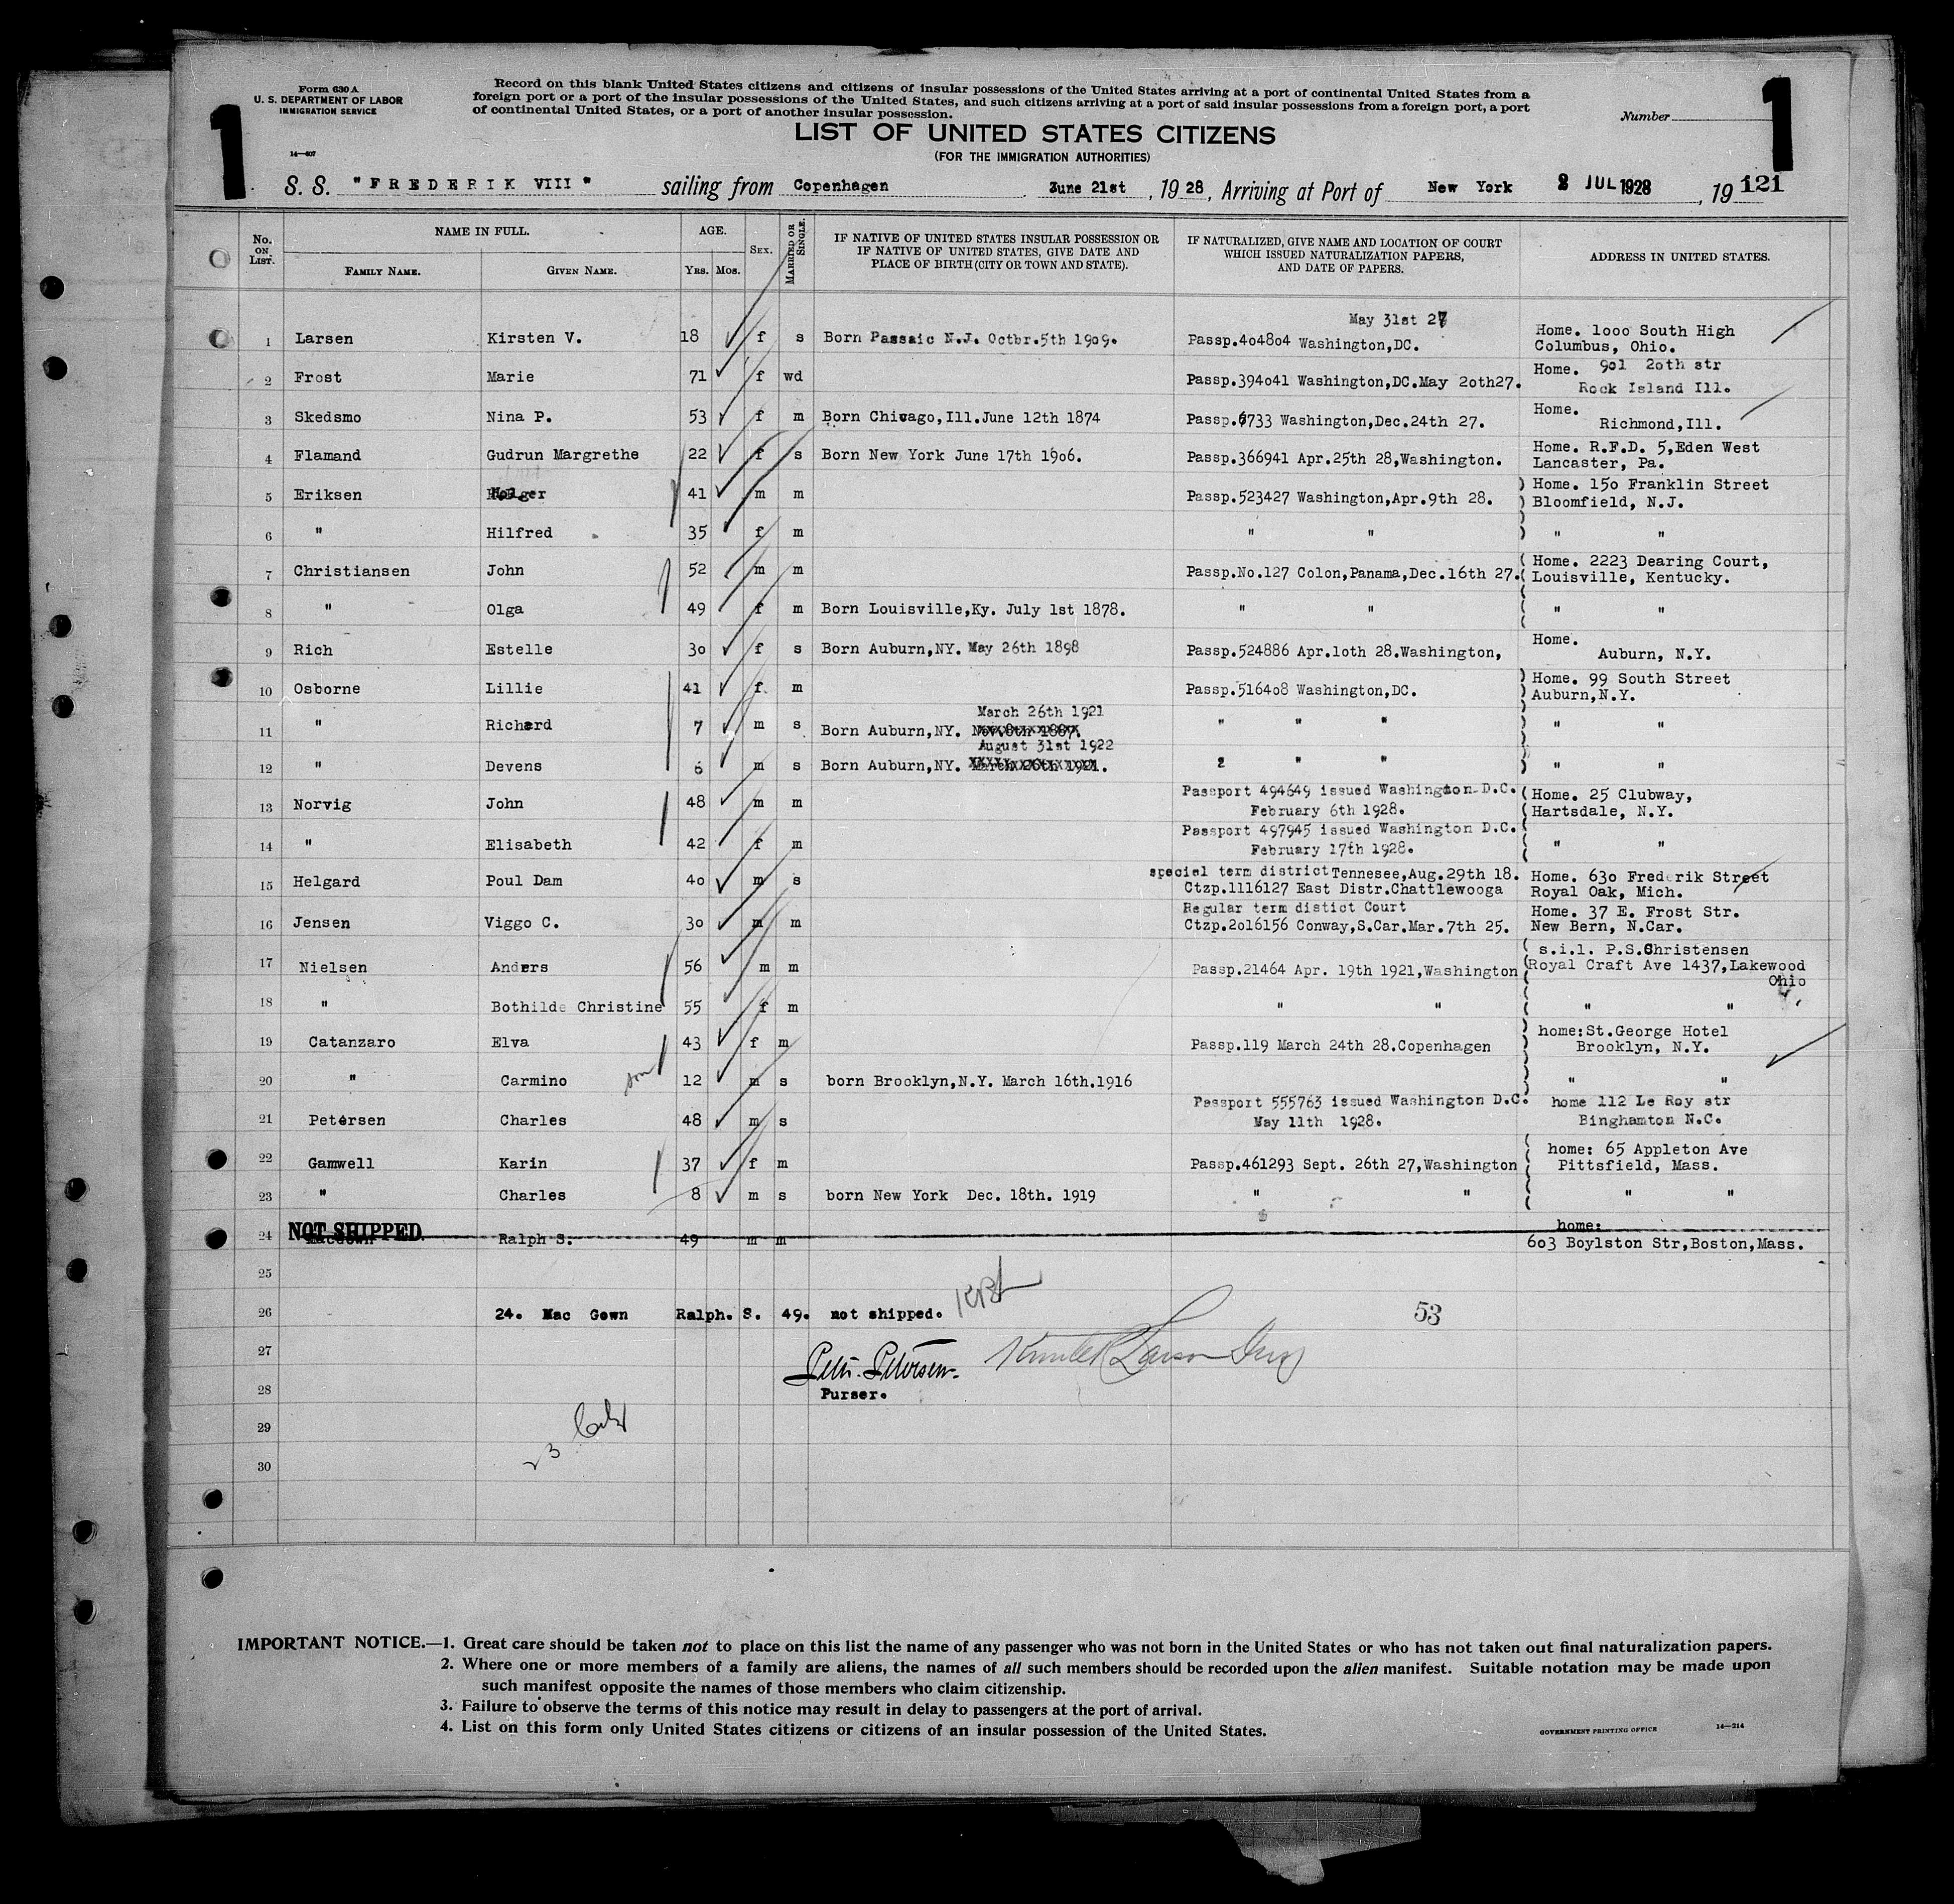 Form 630 A
U. S. DEPARTMENT OF LABOR
IMMIGRATION SERVICE
14—607
1
Record on this blank United States citizens and citizens of insular possessions of the United States arriving at a port of continental United States from a
foreign port or a port of the insular possessions of the United States, and such citizens arriving at a port of said insular possessions from a foreign port, a port
of continental United States, or a port of another insular possession.
Number
1
LIST OF UNITED STATES CITIZENS
(FOR THE IMMIGRATION AUTHORITIES)
S. S. "FREDERIK VIII" sailing from Copenhagen June 21st, 1928, Arriving at Port of New York 2 JUL 1928, 19 121
No. ON LIST. NAME IN FULL. FAMILY NAME. GIVEN NAME. AGE. YRS. MOS. SEX. MARRIED OR SINGLE. IF NATIVE OF UNITED STATES INSULAR POSSESSION OR IF NATIVE OF UNITED STATES, GIVE DATE AND PLACE OF BIRTH (CITY OR TOWN AND STATE). IF NATURALIZED, GIVE NAME AND LOCATION OF COURT WHICH ISSUED NATURALIZATION PAPERS, AND DATE OF PAPERS. ADDRESS IN UNITED STATES.
May 31st 27
1 Larsen Kirsten V. 18 f s Born Passaic N.J. Octbr.5th 1909. Passp.404804 Washington,DC. Home. 1000 South High
Columbus, Ohio.
2 Frost Marie 71 f wd Passp.394041 Washington,DC.May 20th27. Home. 901 20th str
Rock Island Ill.
3 Skedsmo Nina P. 53 f m Born Chivago,Ill.June 12th 1874 Passp.6733 Washington,Dec.24th 27. Home.
Richmond,Ill.
4 Flamand Gudrun Margrethe 22 f s Born New York June 17th 1906. Passp.366941 Apr.25th 28,Washington. Home. R.F.D. 5,Eden West
Lancaster, Pa.
5 Eriksen Holger 41 m m Passp.523427 Washington,Apr.9th 28. Home. 150 Franklin Street
Bloomfield, N.J.
6 " Hilfred 35 f m " " " "
7 Christiansen John 52 m m Passp.No.127 Colon,Panama,Dec.16th 27. Home. 2223 Dearing Court,
Louisville, Kentucky.
8 " Olga 49 f m Born Louisville,Ky. July 1st 1878. " " " "
9 Rich Estelle 30 f s Born Auburn,NY. May 26th 1898 Passp.524886 Apr.10th 28.Washington, Home.
Auburn, N.Y.
10 Osborne Lillie 41 f. m Passp.516408 Washington,DC. Home. 99 South Street
Auburn,N.Y.
March 26th 1921
11 " Richard 7 m s Born Auburn,NY. " " " " "
August 31st 1922
12 " Devens 6 m s Born Auburn,NY. 2 " " " "
13 Norvig John 48 m m Passport 494649 issued Washington D.C.
February 6th 1928. Home. 25 Clubway,
Hartsdale, N.Y.
14 " Elisabeth 42 f m Passport 497945 issued Washington D.C.
February 17th 1928. " "
15 Helgard Poul Dam 40 m s special term district Tennesee,Aug.29th 18.
Ctzp.1116127 East Distr.Chattlewooga Home. 630 Frederik Street
Royal Oak, Mich.
16 Jensen Viggo C. 30 m m Regular term distict Court
Ctzp.2016156 Conway,S.Car.Mar.7th 25. Home. 37 E. Frost Str.
New Bern, N.Car.
17 Nielsen Anders 56 m m Passp.21464 Apr. 19th 1921,Washington s.i.l. P.S.Christensen
Royal Craft Ave 1437,Lakewood
Ohio
18 " Bothilde Christine 55 f m " " " "
19 Catanzaro Elva 43 f m Passp.119 March 24th 28.Copenhagen home:St.George Hotel
Brooklyn, N.Y.
20 " Carmino son 12 m s born Brooklyn,N.Y. March 16th.1916 " "
21 Petersen Charles 48 m s Passport 555763 issued Washington D.C.
May 11th 1928. home 112 Le Roy str
Binghamton N.C.
22 Gamwell Karin 37 f m Passp.461293 Sept. 26th 27,Washington home: 65 Appleton Ave
Pittsfield, Mass.
23 " Charles 8 m s born New York Dec. 18th. 1919 " " " "
NOT SHIPPED.
24 MacGown Ralph S. 49 m m home:
603 Boylston Str,Boston,Mass.
25
26 24. Mac Gown Ralph. S. 49. not shipped. 53
27 Petr. Petersen
28 Purser.
29
23
30
IMPORTANT NOTICE.—1. Great care should be taken not to place on this list the name of any passenger who was not born in the United States or who has not taken out final naturalization papers.
2. Where one or more members of a family are aliens, the names of all such members should be recorded upon the alien manifest. Suitable notation may be made upon
such manifest opposite the names of those members who claim citizenship.
3. Failure to observe the terms of this notice may result in delay to passengers at the port of arrival.
4. List on this form only United States citizens or citizens of an insular possession of the United States.
GOVERNMENT PRINTING OFFICE 14—214